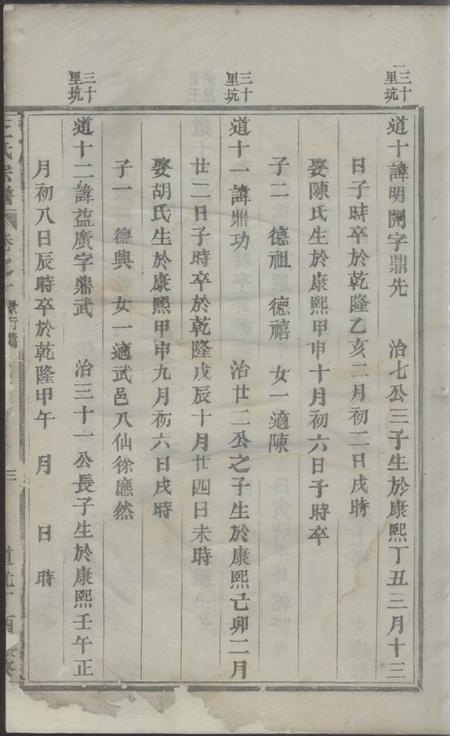 三十里坑
道十諱明開字鼎先 治七公三子生於康熙丁丑三月十三
日子時卒於乾隆乙亥二月初二日戌時
娶陳氏生於康熙甲申十月初六日子時卒
子二 德祖 德禧 女一適陳
三十里坑
道十一諱鼎功 治廿二公之子生於康熙己卯二月
廿二日子時卒於乾隆戊辰十月廿四日未時
娶胡氏生於康熙甲申九月初六日戌時
子一 德興 女一適武邑八仙徐應然
三十里坑
道十二諱益廣字鼎武 治三十一公長子生於康熙壬午正
月初八日辰時卒於乾隆甲午 月 日 時
氏宗譜 卷之 行 三